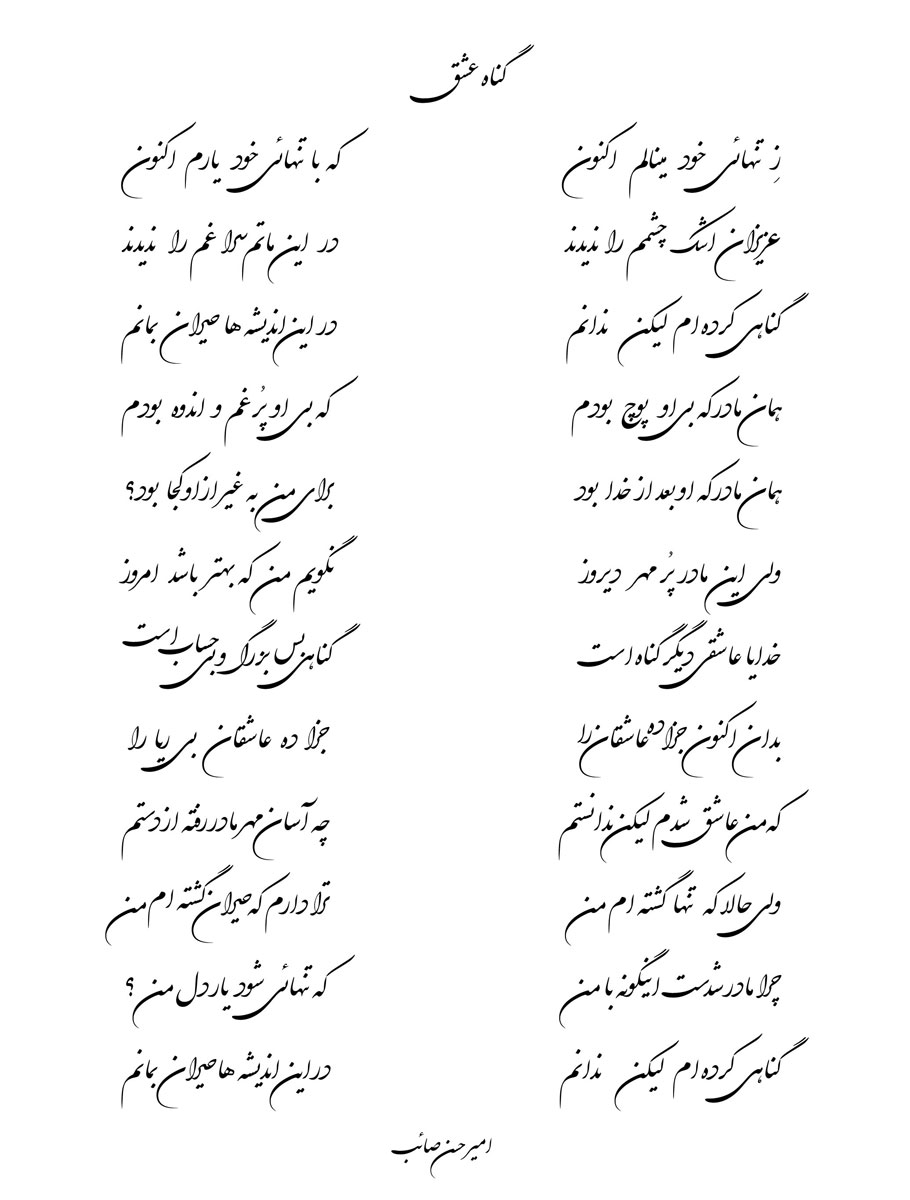 گناه عشق
زِ تنهائی خود مینالم اکنون که با تنهائی خود یارم اکنون
عزیزان اشک چشمم را ندیدند در این ماتم سرا غم را ندیدند
گناهی کرده ام لیکن ندانم در این اندیشه ها حیران بمانم
همان مادر که بی او پوچ بودم که بی او پُر غم و اندوه بودم
همان مادر که او بعد از خدا بود برای من به غیر از او کجا بود؟
ولی این مادر پُر مهر دیروز نگویم من که بهتر باشد امروز
خدایا عاشقی دیگر گناه است گناهی بس بزرگ و بی حساب است
بدان اکنون جزا ده عاشقان را جزا ده عاشقان بی ریا را
که من عاشق شدم لیکن ندانستم چه آسان مهر مادر رفته از دستم
ولی حالا که تنها گشته ام من ترا دارم که حیران گشته ام من
چرا مادر شدست اینگونه با من که تنهائی شود یار دل من ؟
گناهی کرده ام لیکن ندانم در این اندیشه ها حیران بمانم
امیر حسن صائب